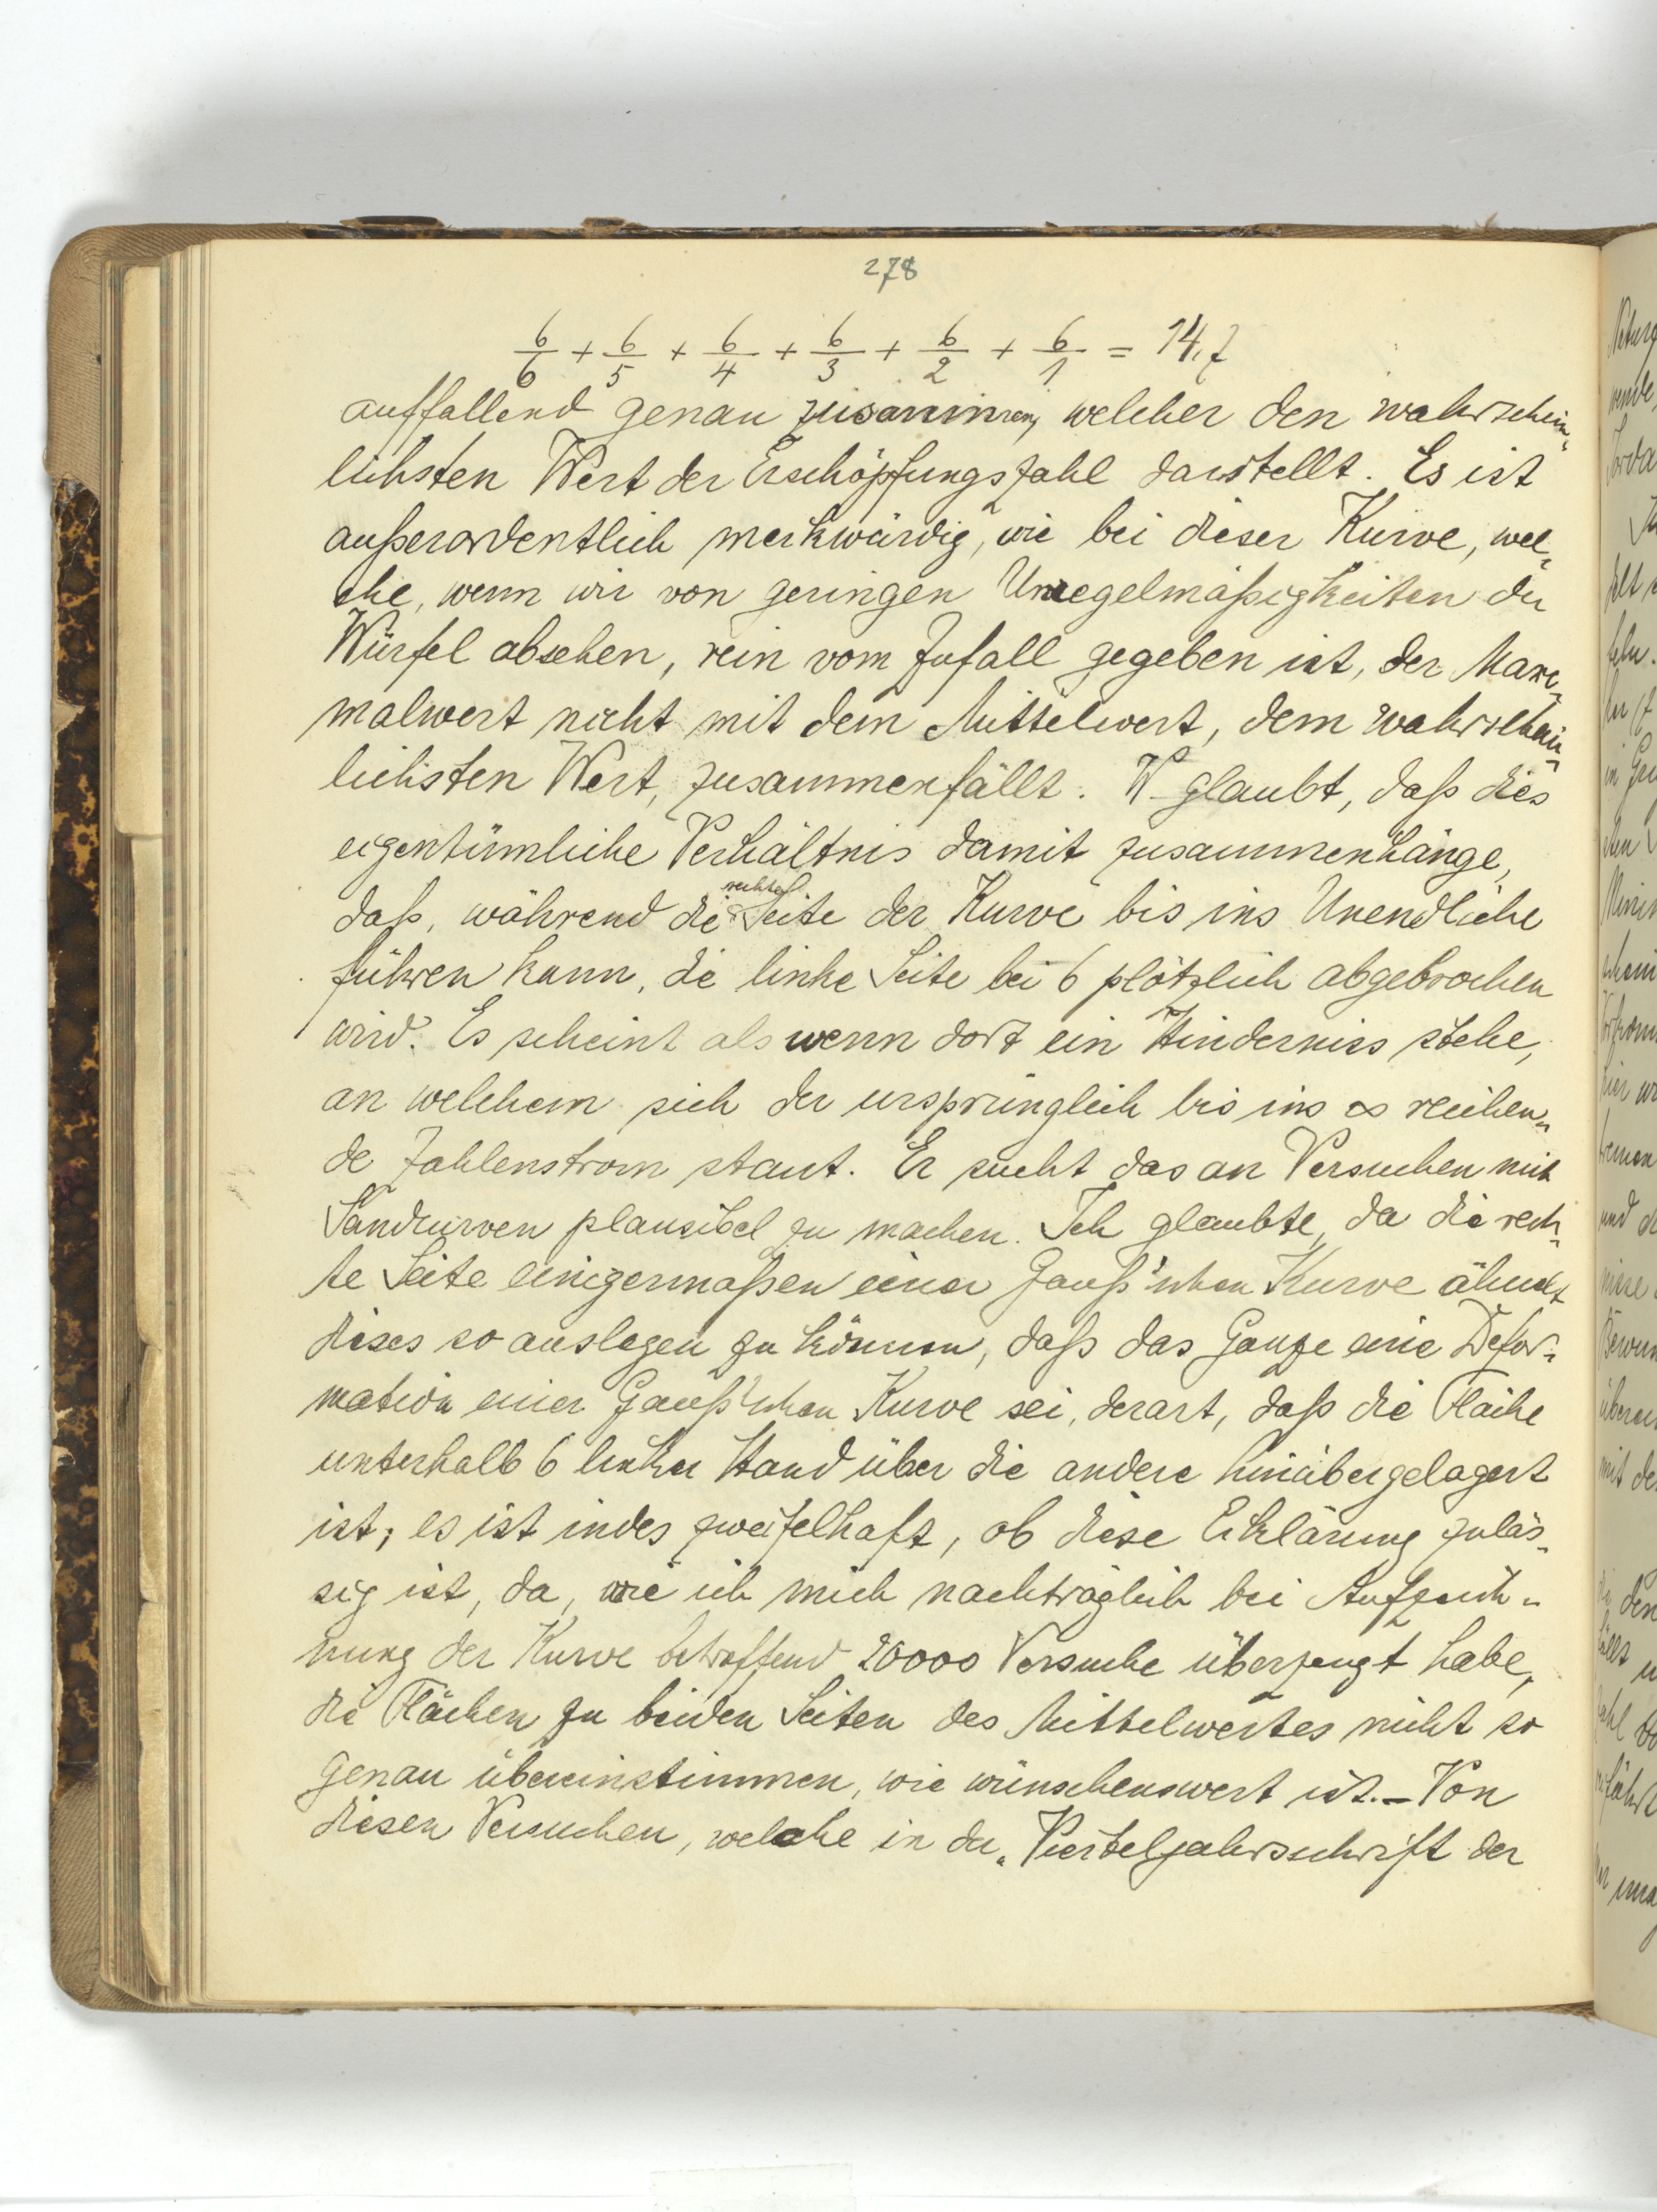 278
6/6 + 6/5 + 6/4 + 6/3 + 6/2 + 6/1 = 14,7
auffallend genau zusammen, welcher den wahrschein-
lichsten Wert der Erschöpfungszahl darstellt. Es ist
außerordentlich merkwürdig, wie bei dieser Kurve, wel-
che, wenn wir von geringen Unregelmäßigkeiten der
Würfel absehen, rein vom Zufall gegeben ist, der Maxi-
malwert nicht mit dem Mittelwert, dem wahrschein-
lichsten Wert, zusammenfällt. W. glaubt, daß dies
eigentümliche Verhältnis damit zusammenhänge,
daß, während die rechte Seite der Kurve bis ins Unendliche
führen kann, die linke Seite bei 6 plötzlich abgebrochen
wird. Es scheint als wenn dort ein Hinderniss stehe,
an welchem sich der ursprünglich bis ins ∞ reichen-
de Zahlenstrom staut. Er sucht das an Versuchen mit
Sandkurven plausibel zu machen. Ich glaubte, da die rech-
te Seite einigermaßen einer Gauß'schen Kurve ähnelt
dieses so auslegen zu können, daß das Ganze eine Defor-
mation einer Gauß'schen Kurve sei, derart, daß die Fläche
unterhalb 6 linker Hand über die andere hinübergelagert
ist; es ist indes zweifelhaft, ob diese Erklärung zuläs-
sig ist, da, wie ich mich nachträglich bei Aufzeich-
nung der Kurve betreffend 20000 Versuche überzeugt habe,
die Flächen zu beiden Seiten des Mittelwertes nicht so
genau übereinstimmen, wie wünschenswert ist. – Von
diesen Versuchen, welche in der „Vierteljahrsschrift der